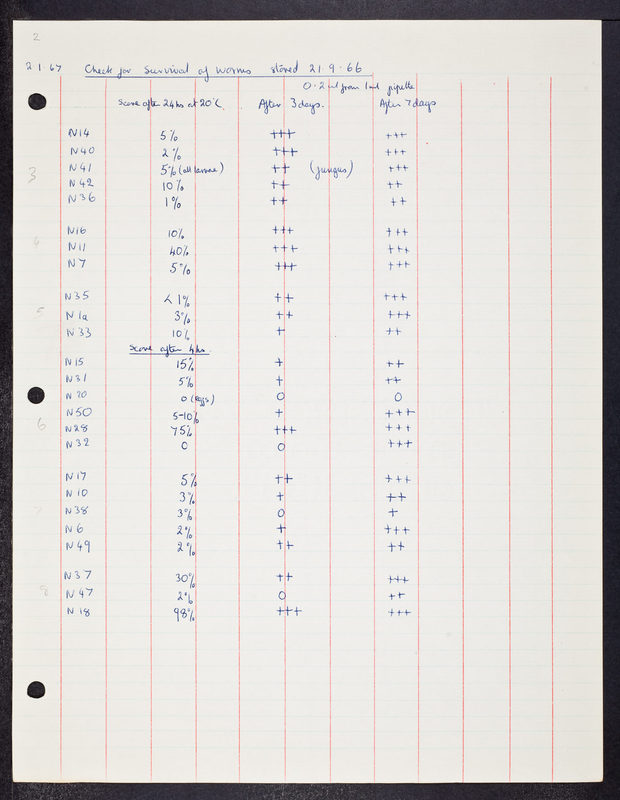 2
2.1.67 Check for survival of worms stored 21.9.66
0.2 ml from 1 ml pipette
Score after 24 hrs at 20°C. After 3 days. After 7 days
N14 5% +++ +++
N40 2% +++ +++
3 N41 5% (all larvae) ++ (fungus) +++
N42 10% ++ ++
N36 1% ++ ++
N16 10% +++ +++
4 N11 40% +++ +++
N7 5% +++ +++
N35 < 1% ++ +++
5 N1a 3% ++ +++
N33 10% + ++
Score after 4 hrs.
N15 15% + ++
N31 5% + ++
N20 0 (eggs) 0 0
N50 5-10% + +++
6 N28 75% +++ +++
N32 0 0 +++
N17 5% ++ +++
N10 3% + ++
7 N38 3% 0 +
N6 2% + +++
N49 2% ++ ++
N37 30% ++ +++
8 N47 2% 0 ++
N18 98% +++ +++